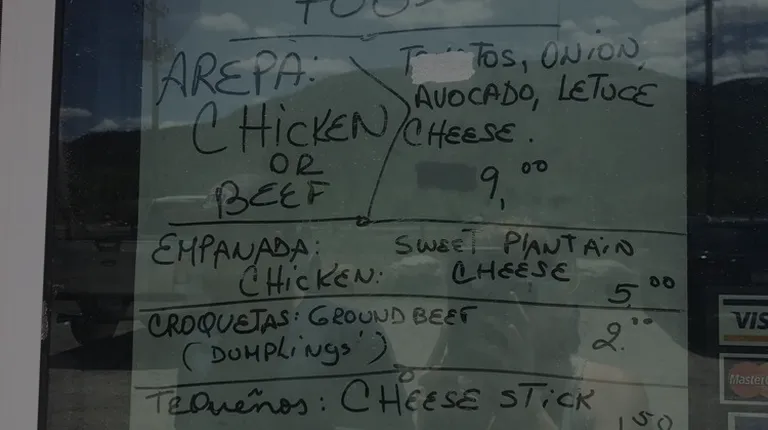 FOOD
AREPA:
CHICKEN
OR
BEEF
ONION,
AVOCADO, LETUCE
CHEESE.
9,00
EMPANADA: SWEET PLANTAIN
CHICKEN: CHEESE
5.00
CROQUETAS: GROUND BEEF
(DUMPLINGS') 2.00
TEQUEÑOS: CHEESE STICK
1,50
VIS
MasterC